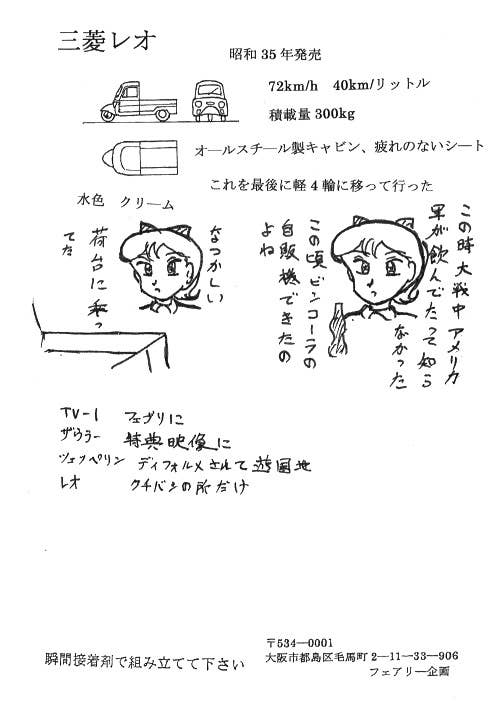 三菱レオ
昭和35年発売
72km/h 40km/リットル
積載量300kg
オールスチール製キャビン、疲れのないシート
これを最後に軽4輪に移って行った
水色 クリーム
この時大戦中アメリカ
軍が飲んでたって知ら
なかった
この頃ビンコーラの
自販機できたの
よね
なつかしい
荷台に乗っ
てた
TV-1 フェブリに
ザウラー 特典映像に
ツェッペリン ディフォルメされて遊園地
レオ クチバシの所だけ
瞬間接着剤で組み立てて下さい
〒534-0001
大阪市都島区毛馬町2-11-33-906
フェアリー企画